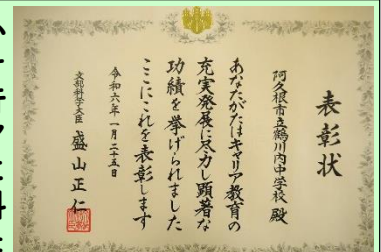 表彰状
阿久根市立鶴川内中学校 殿
あなたがたはキャリア教育の
充実発展に尽力し顕著な
功績を挙げられました
ここにこれを表彰します
令和六年一月二十五日
文部科学大臣 盛山正仁